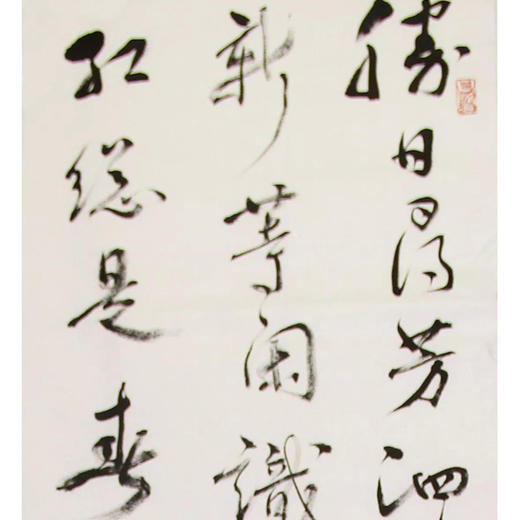 勝日尋芳泗
新等閑識
紅總是春